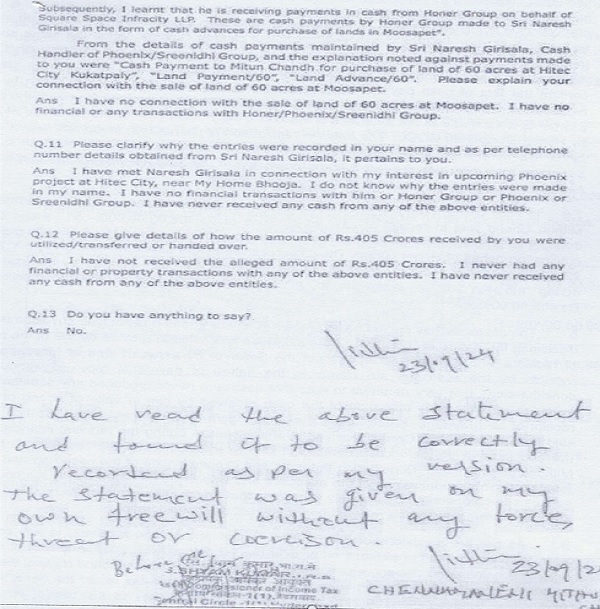 Subsequently, I learnt that he is receiving payments in cash from Honer Group on behalf of
Square Space Infracity LLP. These are cash payments by Honer Group made to Sri Naresh
Girisala in the form of cash advances for purchase of lands in Moosapet".
From the details of cash payments maintained by Sri Naresh Girisala, Cash
Handler of Phoenix/Sreenidhi Group, and the explanation noted against payments made
to you were "Cash Payment to Mitun Chandh for purchase of land of 60 acres at Hitec
City Kukatpaly", "Land Payment/60", "Land Advance/60". Please explain your
connection with the sale of land of 60 acres at Moosapet.
Ans I have no connection with the sale of land of 60 acres at Moosapet. I have no
financial or any transactions with Honer/Phoenix/Sreenidhi Group.
Q.11 Please clarify why the entries were recorded in your name and as per telephone
number details obtained from Sri Naresh Girisala, it pertains to you.
Ans I have met Naresh Girisala in connection with my interest in upcoming Phoenix
project at Hitec City, near My Home Bhooja. I do not know why the entries were made
in my name. I have no financial transactions with him or Honer Group or Phoenix or
Sreenidhi Group. I have never received any cash from any of the above entities.
Q.12 Please give details of how the amount of Rs.405 Crores received by you were
utilized/transferred or handed over.
Ans I have not received the alleged amount of Rs.405 Crores. I never had any
financial or property transactions with any of the above entities. I have never received
any cash from any of the above entities.
Q.13 Do you have anything to say?
Ans No.
23/09/24
I have read the above statement
and found it to be correctly
recorded as per my version.
The statement was given on my
own free will without any force,
threat or coercison.
Before me
23/09/2
S. SHYAM KUMAR, I.R.S.
of Income Tax
Central Circle